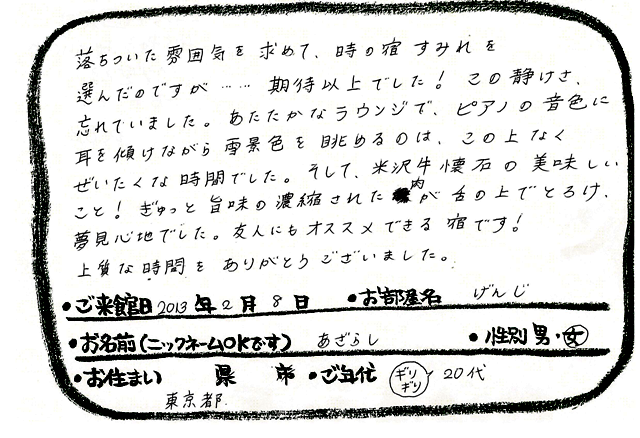 落ちついた雰囲気を求めて、時の宿すみれを
選んだのですが…… 期待以上でした！この静けさ、
忘れていました。あたたかなラウンジで、ピアノの音色に
耳を傾けながら雪景色を眺めるのは、この上なく
ぜいたくな時間でした。そして、米沢牛懐石の美味しい
こと！ぎゅっと旨味の濃縮された肉が舌の上でとろけ、
夢見心地でした。友人にもオススメできる宿です！
上質な時間をありがとうございました。
•ご来館日 2013年2月8日 •お部屋名 げんじ
•お名前(ニックネームOKです) あざらし •性別 男・女
•お住まい 県 市 •ご年代 ギリギリ 20代
東京都